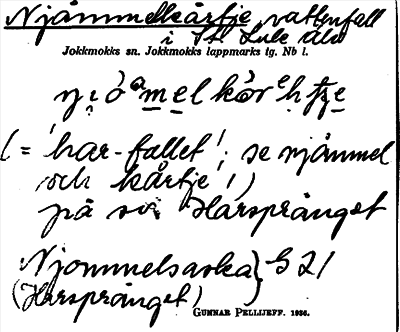 Njåmmelkårtje, vattenfall
i St. Lule älv
Jokkmokks sn. Jokkmokks lappmarks tg. Nb l.
(= 'har-fallet'; se njåmmel
och kårtje!)
på sv. Harsprånget
Njommelsaska } G 21
(Harsprånget)
GUNNAR PELLIJEFF. 1936.